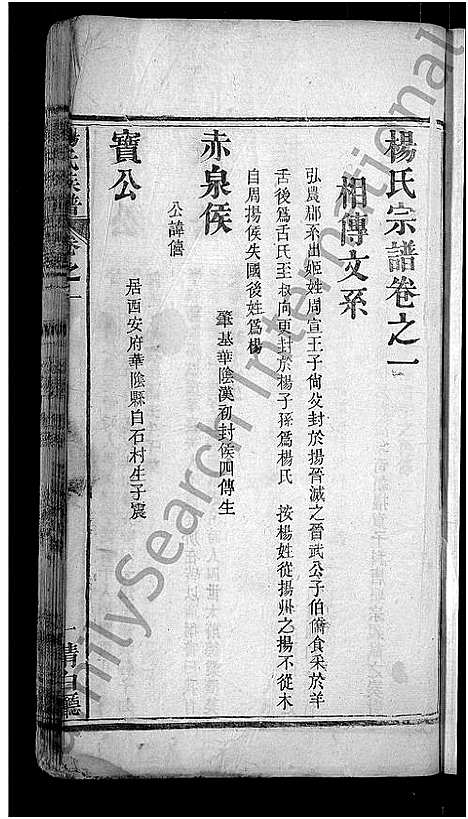 楊氏宗譜卷之一
相傳文系
弘農郡系出姬姓周宣王子尙父封於揚晉滅之晉武公子伯僑食采於羊
舌後爲舌氏至叔向更封於楊子孫爲楊氏 按楊姓從揚州之揚不從木
自周揚侯失國後姓爲楊
赤泉侯 肇基華陰漢初封侯四傳生
公諱僖
寶公 居西安府華陰縣白石村生子震
楊氏族譜 卷之一 一 清白廳
FamilySearch International